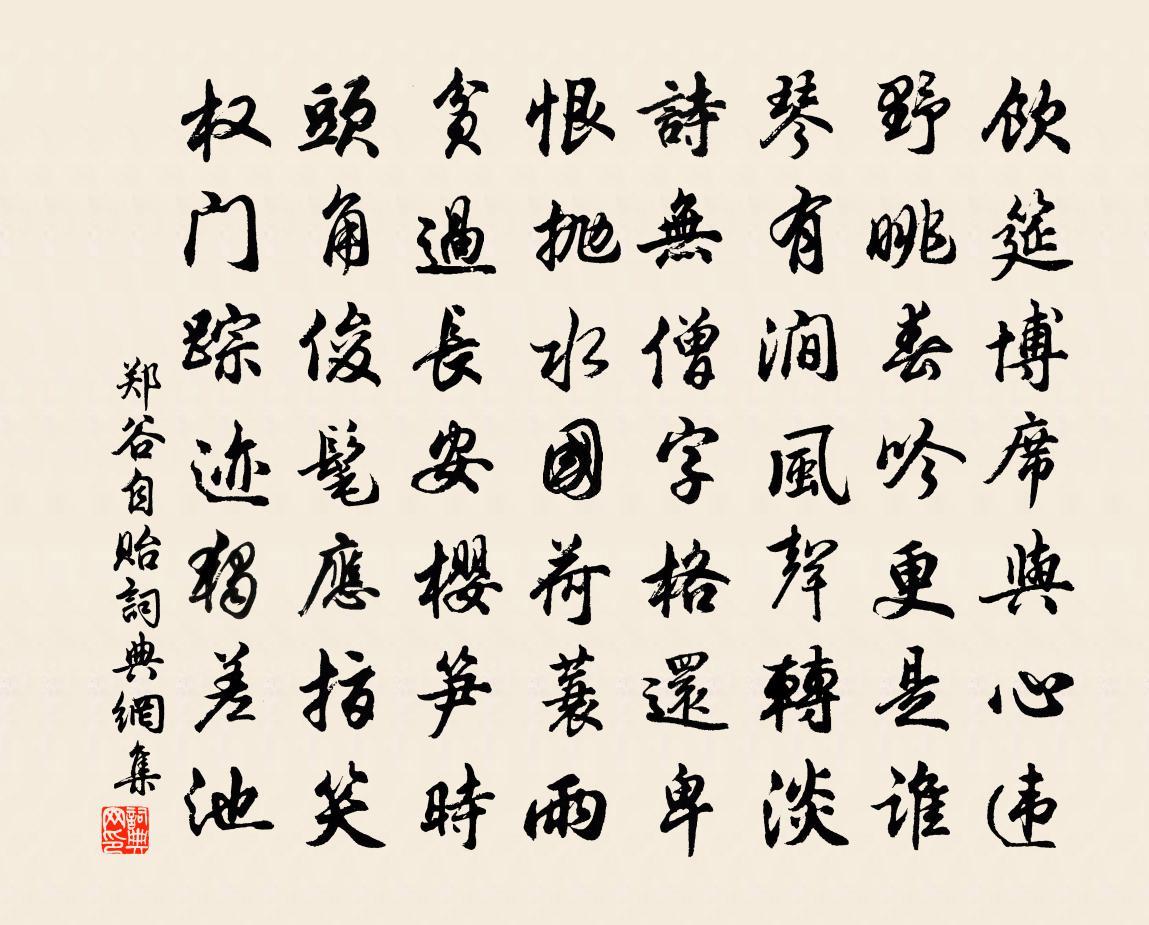 飲筵博席與心违
野眺春吟更是谁
琴有澗風聲轉淡
詩無僧字格還卑
恨抛水國荷蓑雨
貧過長安櫻笋時
頭角俊髦應指笑
权门踪迹獨差池
郑谷自贻詞典網集
詞典网印